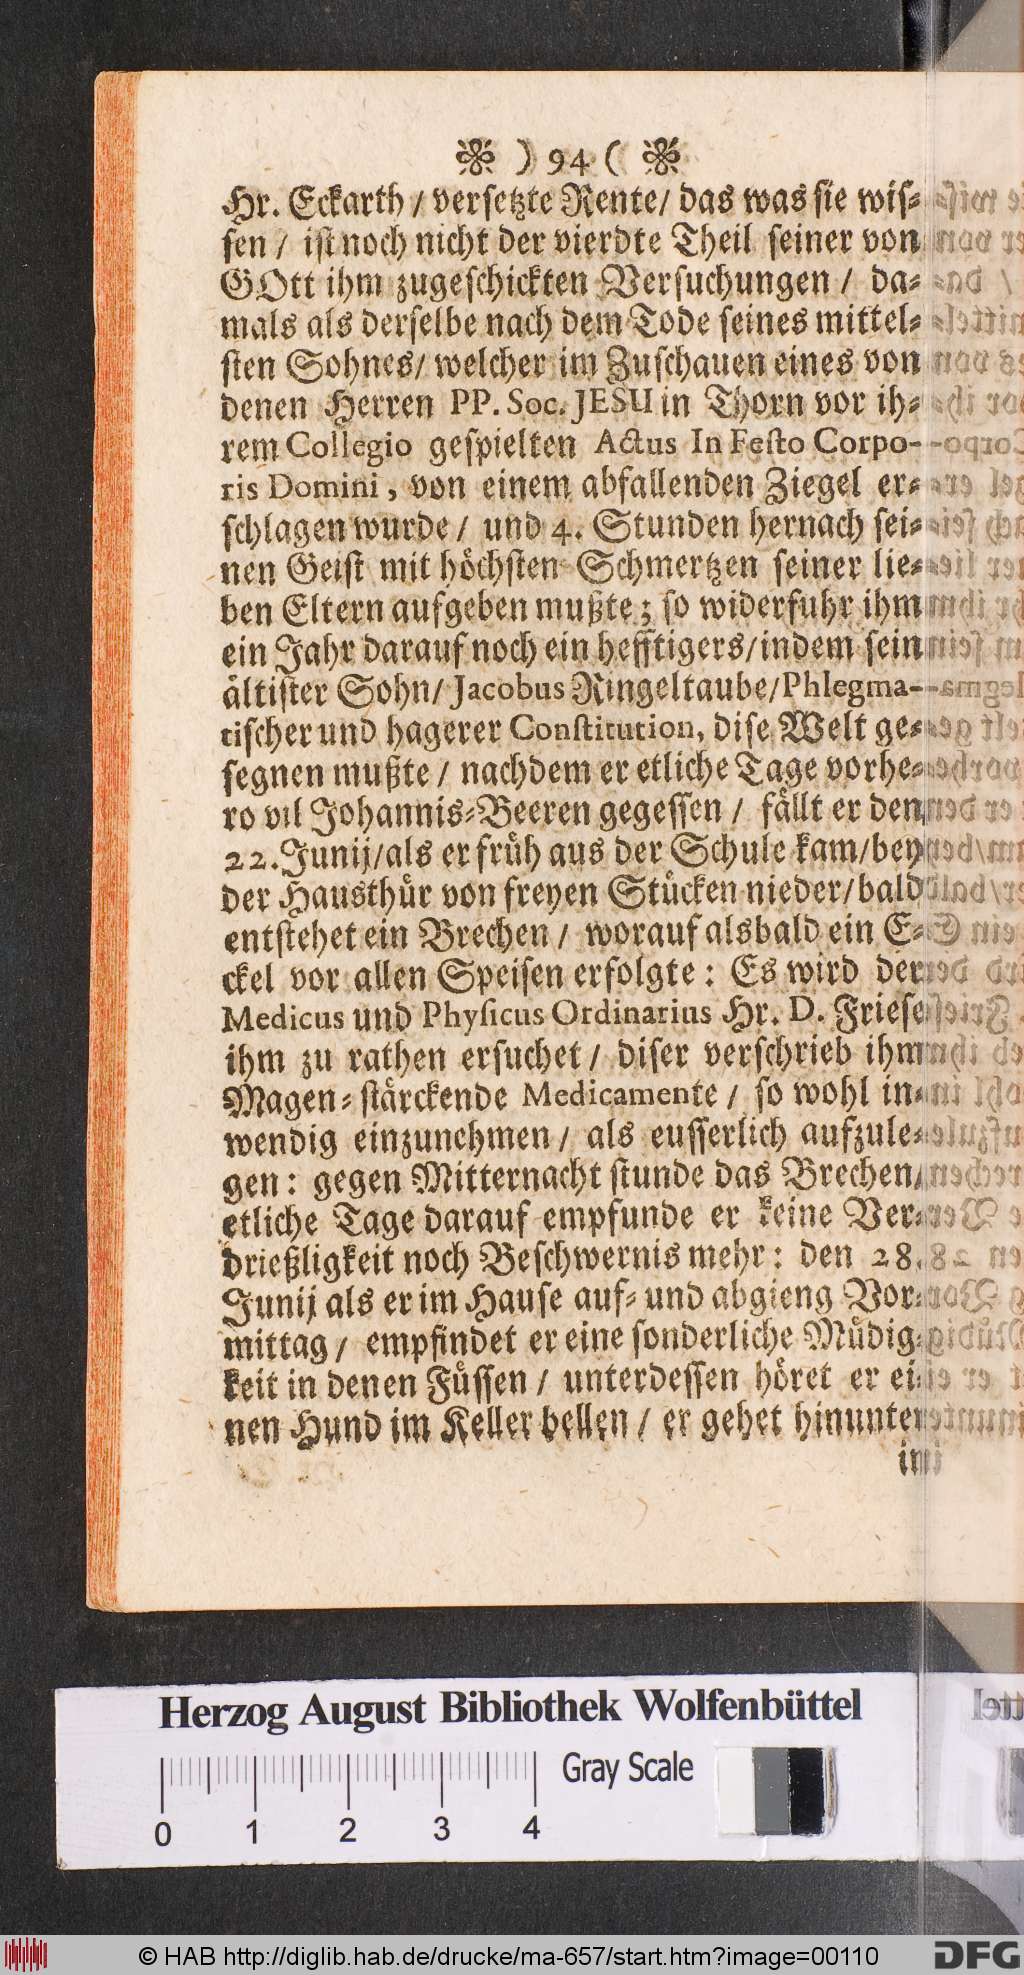 ) 94 (
Hr. Eckarth / versetzte Rente / das was sie wis⸗
sen / ist noch nicht der vierdte Theil seiner von
GOtt ihm zugeschickten Versuchungen / da⸗
mals als derselbe nach dem Tode seines mittel⸗
sten Sohnes / welcher im Zuschauen eines von
denen Herren PP. Soc. JESU in Thorn vor ih⸗
rem Collegio gespielten Actus In Festo Corpo-
ris Domini, von einem abfallenden Ziegel er⸗
schlagen wurde / und 4. Stunden hernach sei⸗
nen Geist mit höchsten Schmertzen seiner lie⸗
ben Eltern aufgeben mußte; so widerfuhr ihm
ein Jahr darauf noch ein hefftigers / indem sein
ältister Sohn / Jacobus Ringeltaube / Phlegma-
tischer und hagerer Constitution, dise Welt ge⸗
segnen mußte / nachdem er etliche Tage vorhe⸗
ro vil Johannis⸗Beeren gegessen / fällt er den
22. Junij / als er früh aus der Schule kam / bey
der Hausthür von freyen Stücken nieder / bald
entstehet ein Brechen / worauf alsbald ein E⸗
ckel vor allen Speisen erfolgte: Es wird der
Medicus und Physicus Ordinarius Hr. D. Friese
ihm zu rathen ersuchet / diser verschrieb ihm
Magen⸗stärckende Medicamente / so wohl in⸗
wendig einzunehmen / als eusserlich aufzule⸗
gen: gegen Mitternacht stunde das Brechen /
etliche Tage darauf empfunde er keine Ver⸗
drießligkeit noch Beschwernis mehr: den 28.
Junij als er im Hause auf⸗ und abgieng Vor⸗
mittag / empfindet er eine sonderliche Müdig⸗
keit in denen Füssen / unterdessen höret er ei⸗
nen Hund im Keller bellen / er gehet hinunter
Herzog August Bibliothek Wolfenbüttel
Gray Scale
0 1 2 3 4
© HAB http://diglib.hab.de/drucke/ma-657/start.htm?image=00110
DFG